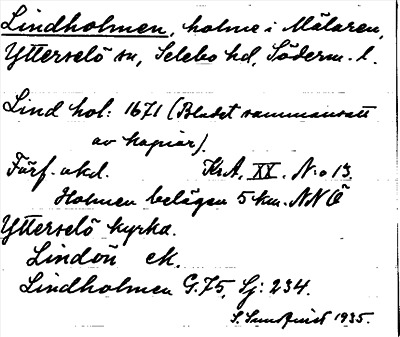 Lindholmen, holme i Mälaren,
Ytterselö sn, Selebo hd, Söderm. l.
Lind hol: 1671 (Bladet sammansatt
av kopior).
Förf. okd. Kr.A. XX. N:o 13
Holmen belägen 5 km. NNÖ
Ytterselö kyrka.
Lindön ek.
Lindholmen G. 75, Sj: 234.
S. Sundqvist 1935.